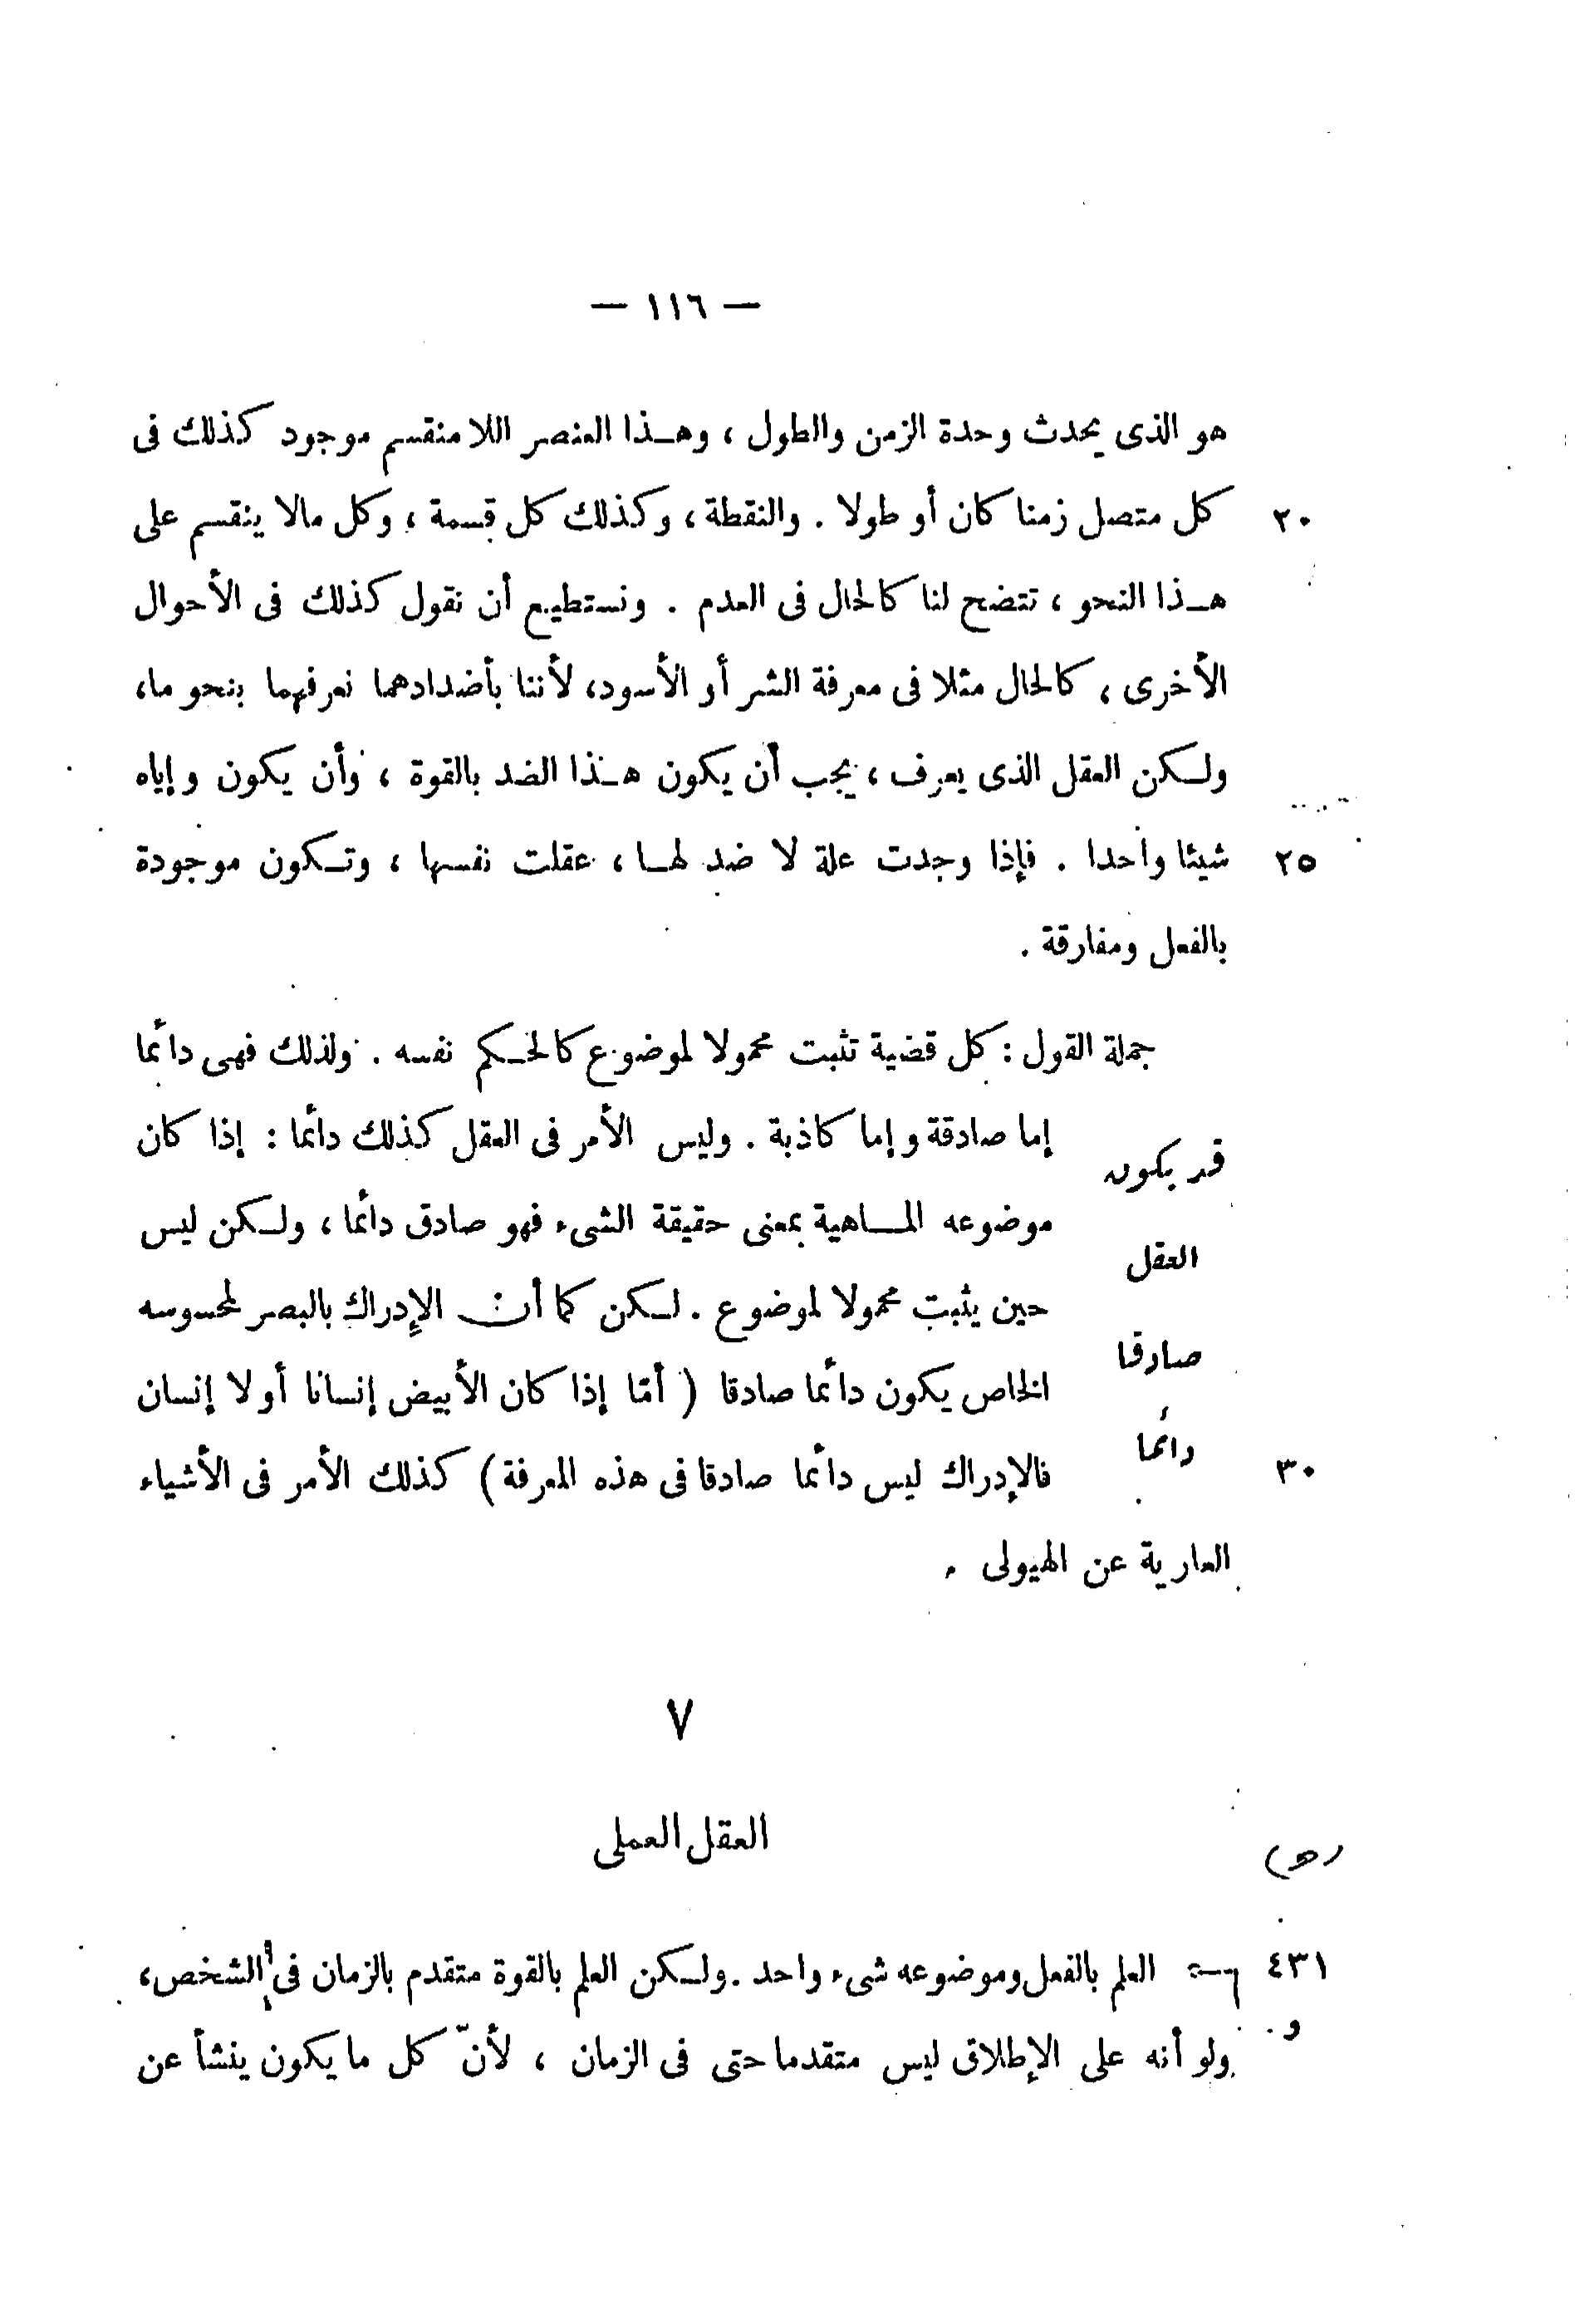 — ١١٦ —
هو الذى يحدث وحدة الزمن والطول ، وهـذا العنصر اللا منقسم موجود كذلك فى
٢٠ كل متصل زمنا كان أو طولا . والنقطة ، وكذلك كل قسمة ، وكل مالا ينقسم على
هـذا النحو ، تتضح لنا كالحال فى العدم . ونستطيع أن نقول كذلك فى الأحوال
الأخرى ، كالحال مثلا فى معرفة الشر أو الأسود، لأننا بأضدادهما نعرفهما بنحو ما،
ولـكن العقل الذى يعرف ، يجب أن يكون هـذا الضد بالقوة ، وأن يكون وإياه
٢٥ شيئا واحدا . فإذا وجدت علة لا ضد لهـا ، عقلت نفسها ، وتـكون موجودة
بالفعل ومفارقة .
جملة القول : كل قضية تثبت محمولا لموضوع كالحـكم نفسه . ولذلك فهى دائما
إما صادقة وإما كاذبة . وليس الأمر فى العقل كذلك دائما : إذا كان
قد يكون
موضوعه المـاهية بمعنى حقيقة الشىء فهو صادق دائما ، ولـكن ليس
العقل
حين يثبت محمولا لموضوع . لـكن كما أن الإدراك بالبصر لمحسوسه
صادقا
الخاص يكون دائما صادقا ( أمّا إذا كان الأبيض إنسانا أو لا إنسان
دائما
٣٠ فالإدراك ليس دائما صادقا فى هذه المعرفة ) كذلك الأمر فى الأشياء
العارية عن الهيولى .
٧
العقل العملى
(هـ)
٤٣١ العلم بالفعل وموضوعه شىء واحد . ولـكن العلم بالقوة متقدم بالزمان فى الشخص،
و
ولو أنه على الإطلاق ليس متقدما حتى فى الزمان ، لأنّ كل ما يكون ينشأ عن